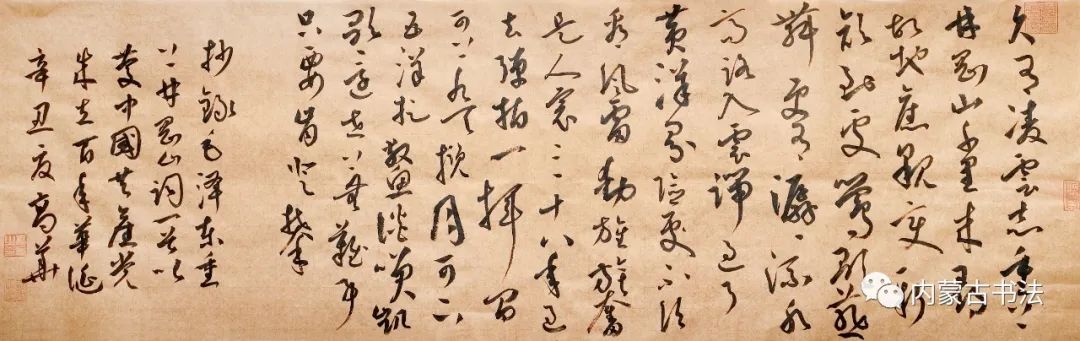 久有凌雲志重上
井岡山千里来尋
故地舊貌变新
颜到处莺歌燕
舞更有潺潺流水
高路入雲端过了
黄洋界险处不须
看風雷動旌旗奮
是人寰三十八年过
去弹指一挥间
可上九天揽月可下
五洋捉鳖谈笑凯
歌还世上无難事
只要肯登攀
抄録毛泽东重
上井冈山词一首以
慶中國共産党
成立百年華诞
辛丑夏高華
内蒙古书法